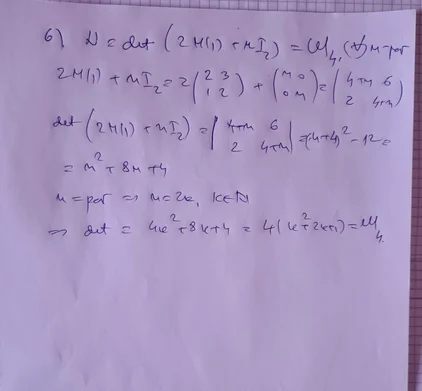 6) N = det (2M(1) + nI₂) = M₄, (∀) n - par
2M(1) + nI₂ = 2(2 3 1 2) + (n 0 0 n) = (4+n 6 2 4+n)
det (2M(1) + nI₂) = |4+n 6 2 4+n| = (n+4)² - 12 =
= n² + 8n + 4
n = par ⇒ n = 2k, k∈N
⇒ det = 4k² + 8k + 4 = 4(k² + 2k + 1) = M₄